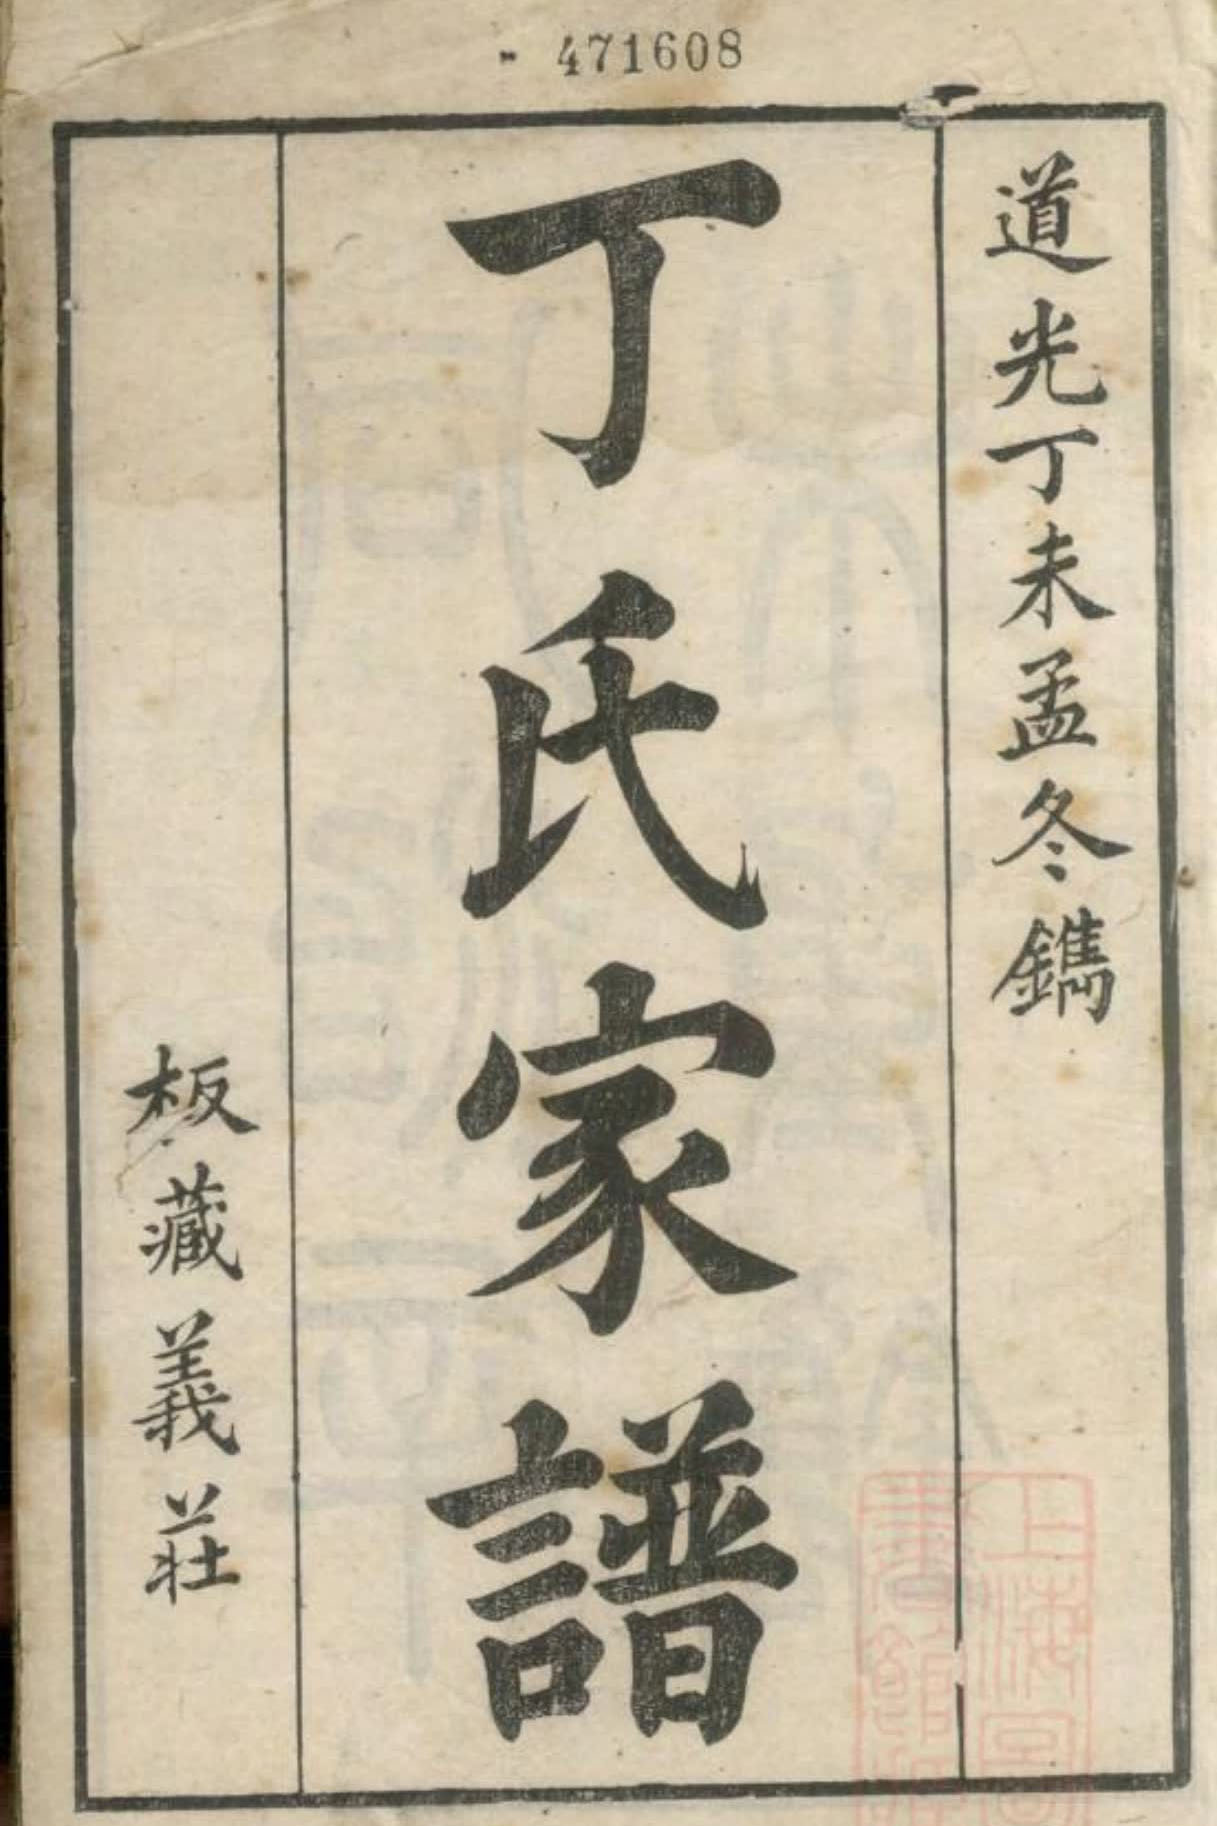 471608
道光丁未孟冬鐫
丁氏家譜
板藏義莊
上海圖
書館